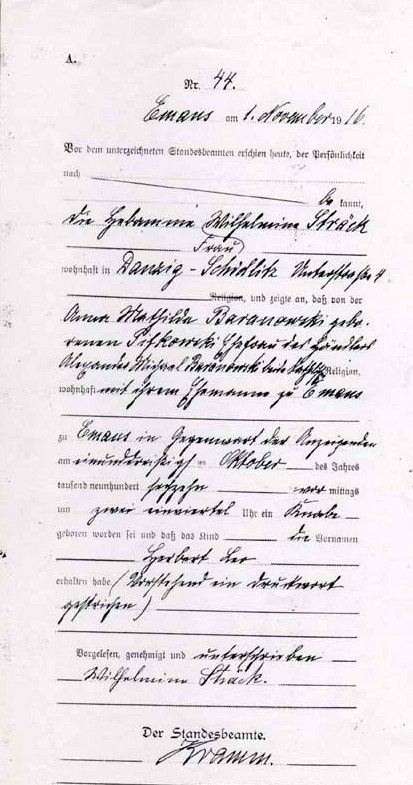 A.
Nr. 44.
Emaus am 1. November 1916.
Vor dem unterzeichneten Standesbeamten erschien heute, der Persönlichkeit
nach
be kannt,
die Hebamme Wilhelmine Sträck
Frau
wohnhaft in Danzig-Schidlitz Unterstraße 4
Religion, und zeigte an, daß von der
Anna Mathilde Baranowski gebo-
renen Ehefrau des Händlers
Alexander Michael Baranowski beide Religion,
wohnhaft mit ihrem Ehemanne zu Emaus
zu Emaus in Gegenwart der Anzeigenden
am einunddreißigsten Oktober des Jahres
tausend neunhundert sechzehn vor mittags
um zwei einviertel Uhr ein Knabe
geboren worden sei und daß das Kind die Vornamen
Herbert Leo
erhalten habe (Vorstehend ein Druckwort
gestrichen)
Vorgelesen, genehmigt und unterschrieben
Wilhelmine Sträck.
Der Standesbeamte.
Kramm.